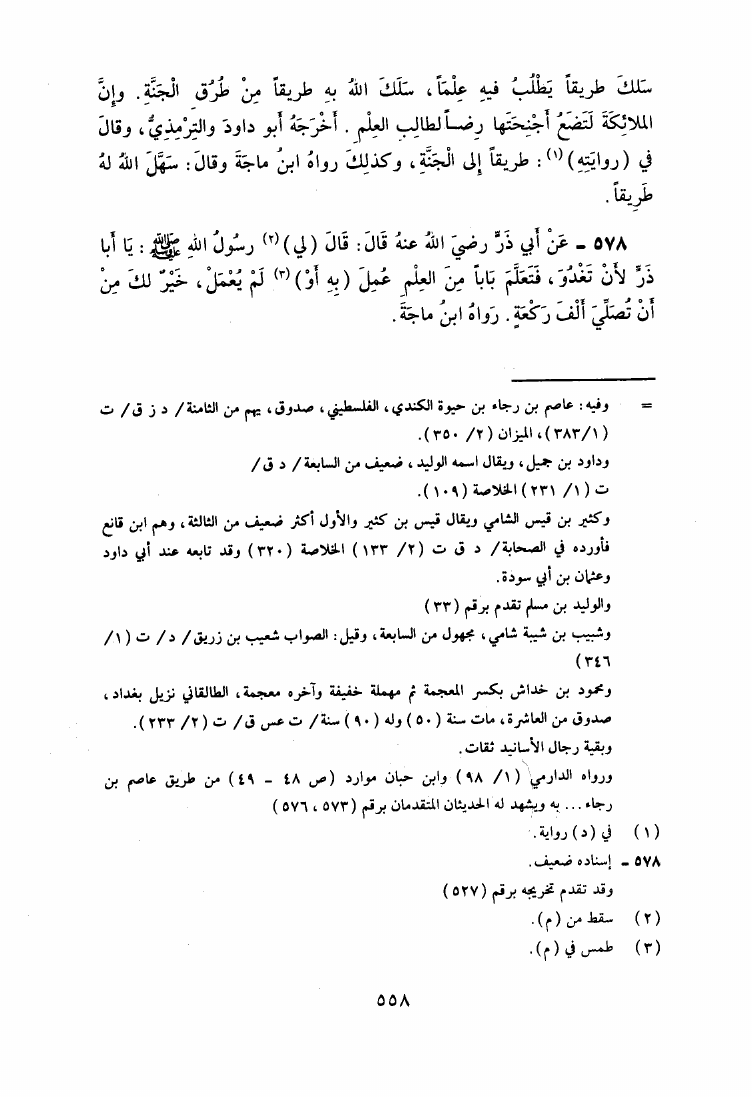 سَلَكَ طريقاً يَطْلُبُ فيهِ عِلْمَاً، سَلَكَ اللهُ بهِ طريقاً مِنْ طُرُقِ الْجَنَّةِ. وإنَّ
الملائِكَةَ لَتَضَعُ أجْنِحَتَها رِضاً لطالِبِ العِلْمِ. أخْرَجَهُ أبو داودَ والتِرْمِذيُّ، وقالَ
في (روايَتِهِ)(١): طريقاً إلى الْجَنَّةِ، وكذلِكَ رواهُ ابنُ ماجَةَ وقالَ: سَهَّلَ اللهُ لهُ
طَرِيقاً.
٥٧٨ ـ عَنْ أبي ذَرٍّ رضيَ اللهُ عنهُ قالَ: قالَ (لي)(٢) رسولُ اللهِ ﷺ: يَا أبا
ذَرٍّ لأنْ تَغْدُوَ، فَتَعَلَّمَ بَاباً مِنَ العِلْمِ عُمِلَ (بِهِ أوْ)(٣) لَمْ يُعْمَلْ، خَيْرٌ لكَ مِنْ
أنْ تُصَلِّيَ ألْفَ رَكْعَةٍ. رَواهُ ابنُ ماجَةَ.
= وفيه: عاصم بن رجاء بن حيوة الكندي، الفلسطيني، صدوق، يهم من الثامنة/ د ز ق/ ت
(٣٨٣/١)، الميزان (٢/ ٣٥٠).
وداود بن جميل، ويقال اسمه الوليد، ضعيف من السابعة/ د ق/
ت (١/ ٢٣١) الخلاصة (١٠٩).
وكثير بن قيس الشامي ويقال قيس بن كثير والأول أكثر ضعيف من الثالثة، وهم ابن قانع
فأورده في الصحابة/ د ق ت (٢/ ١٣٣) الخلاصة (٣٢٠) وقد تابعه عند أبي داود
وعثمان بن أبي سودة.
والوليد بن مسلم تقدم برقم (٣٣)
وشبيب بن شيبة شامي، مجهول من السابعة، وقيل: الصواب شعيب بن زريق/ د/ ت (١/
٣٤٦)
ومحمود بن خداش بكسر المعجمة ثم مهملة خفيفة وآخره معجمة، الطالقاني نزيل بغداد،
صدوق من العاشرة، مات سنة (٥٠) وله (٩٠) سنة/ ت عس ق/ ت (٢/ ٢٣٣).
وبقية رجال الأسانيد ثقات.
ورواه الدارمي (١/ ٩٨) وابن حبان موارد (ص ٤٨ - ٤٩) من طريق عاصم بن
رجاء... به ويشهد له الحديثان المتقدمان برقم (٥٧٣، ٥٧٦)
(١) في (د) رواية.
٥٧٨ ـ إسناده ضعيف.
وقد تقدم تخريجه برقم (٥٢٧)
(٢) سقط من (م).
(٣) طمس في (م).
٥٥٨